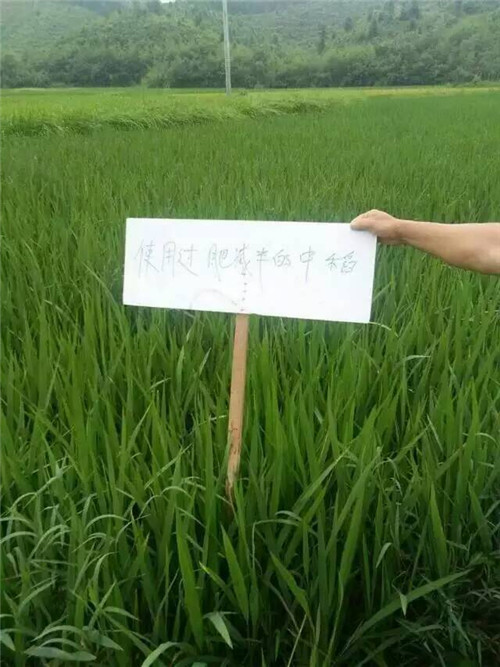 使用过肥羔丰的中稻